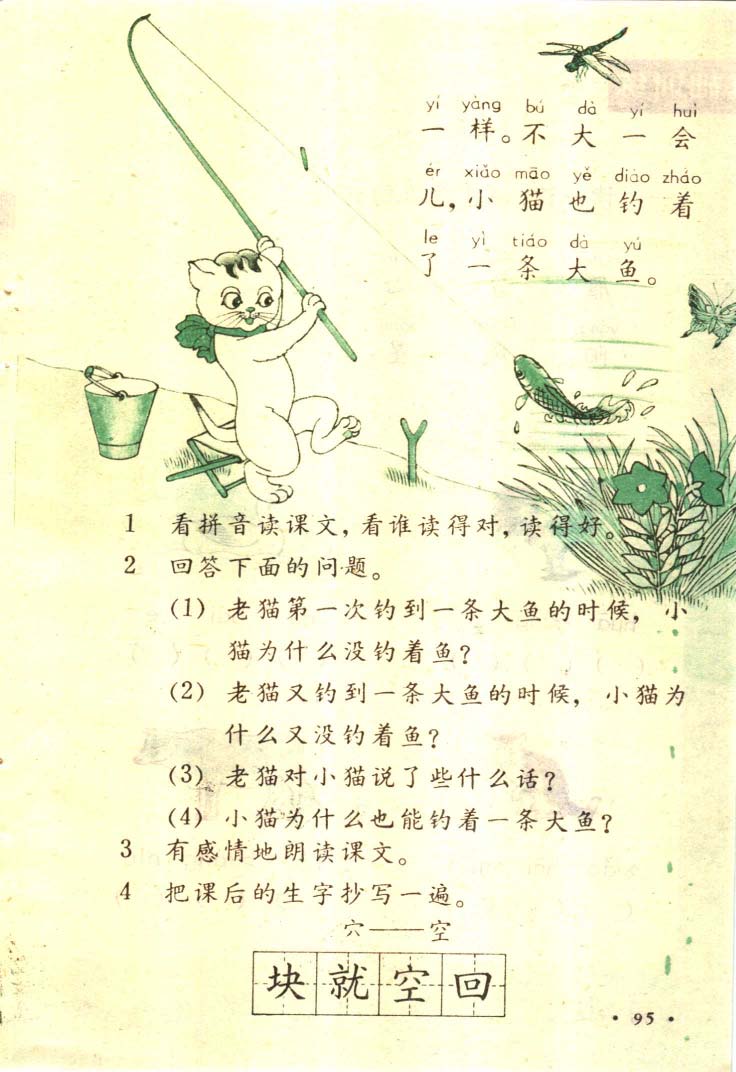 yí yàng bú dà yí huì
一样。不大一会
ér xiǎo māo yě diào zháo
儿,小猫也钓着
le yì tiáo dà yú
了一条大鱼。
1 看拼音读课文,看谁读得对,读得好。
2 回答下面的问题。
(1) 老猫第一次钓到一条大鱼的时候,小
猫为什么没钓着鱼?
(2) 老猫又钓到一条大鱼的时候,小猫为
什么又没钓着鱼?
(3) 老猫对小猫说了些什么话?
(4) 小猫为什么也能钓着一条大鱼?
3 有感情地朗读课文。
4 把课后的生字抄写一遍。
穴——空
块就空回
· 95 ·